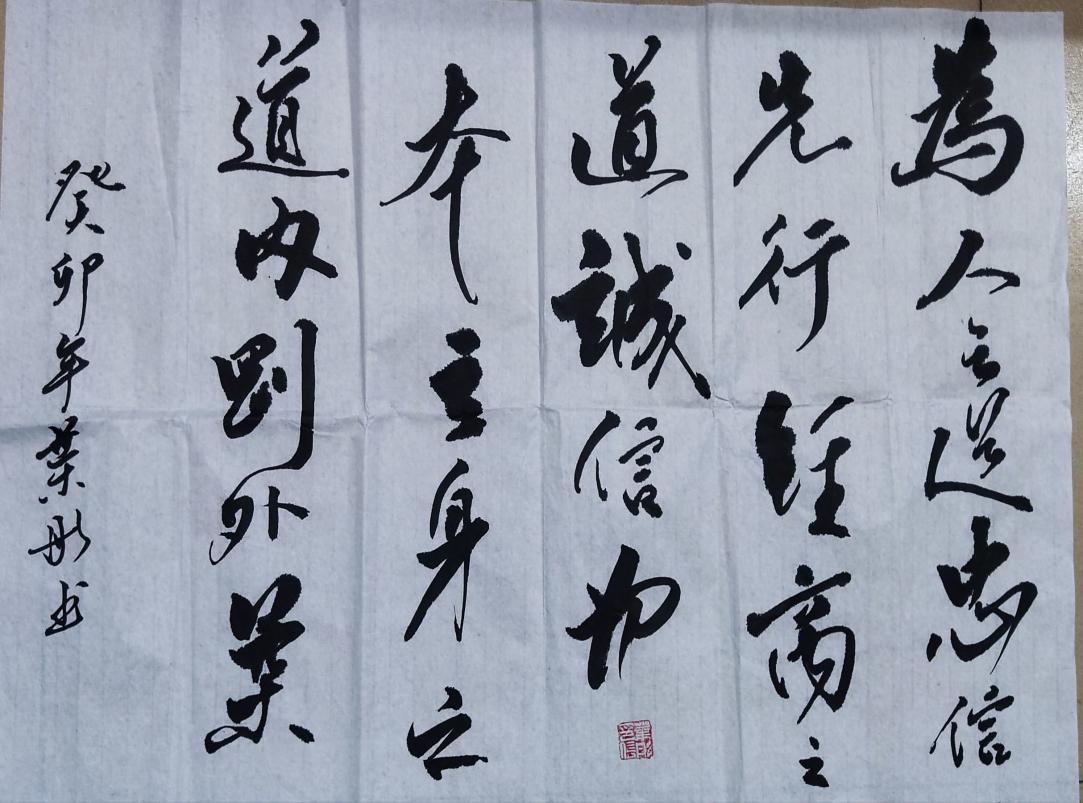 為人之道忠信
先行經商之
道誠信为
本立身之
道内剛外柔
癸卯年葉彤书